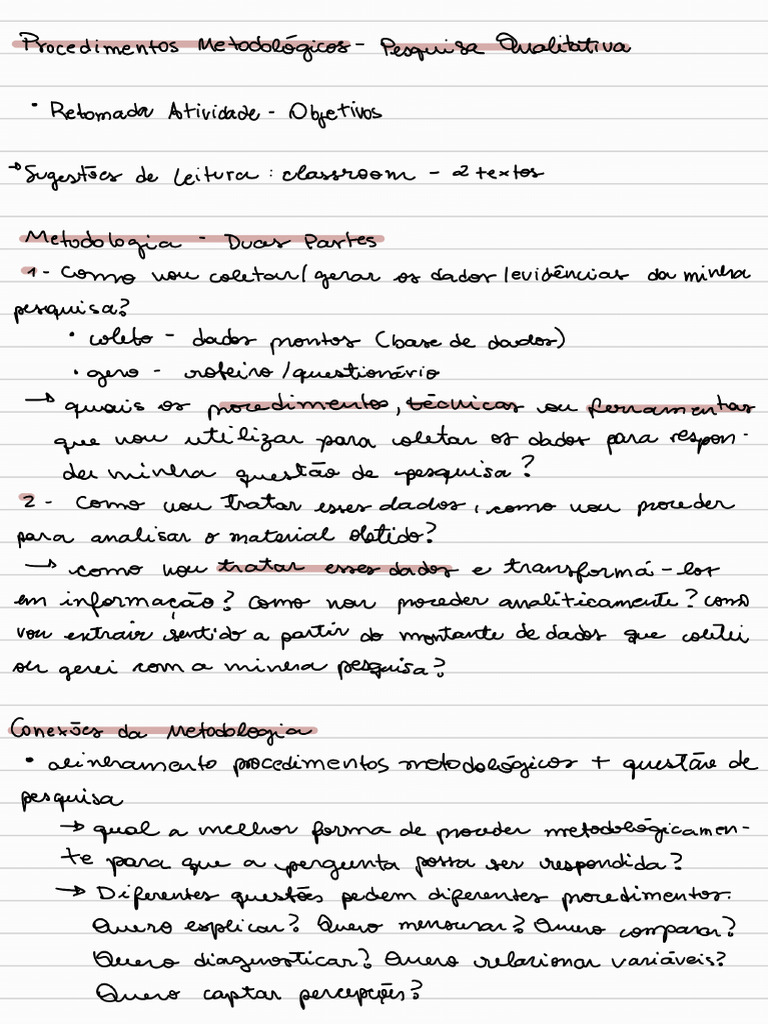 Procedimentos Metodológicos - Pesquisa Qualitativa
• Retomada Atividade - Objetivos
→ Sugestões de leitura : classroom - 2 textos
Metodologia - Duas Partes
1 - Como vou coletar/gerar os dados/evidências da minha
pesquisa?
• coleto - dados prontos (base de dados)
• gero - roteiro/questionário
→ quais os procedimentos, técnicas ou ferramentas
que vou utilizar para coletar os dados para respon-
der minha questão de pesquisa?
2 - Como vou tratar esses dados, como vou proceder
para analisar o material obtido?
→ como vou tratar esses dados e transformá-los
em informação? Como vou proceder analiticamente? como
vou extrair sentido a partir do montante de dados que coletei
ou gerei com a minha pesquisa?
Conexões da Metodologia
• alinhamento procedimentos metodológicos + questão de
pesquisa
→ qual a melhor forma de proceder metodológicamen-
te para que a pergunta possa ser respondida?
→ Diferentes questões pedem diferentes procedimentos.
Quero explicar? Quero mensurar? Quero comparar?
Quero diagnosticar? Quero relacionar variáveis?
Quero captar percepções?